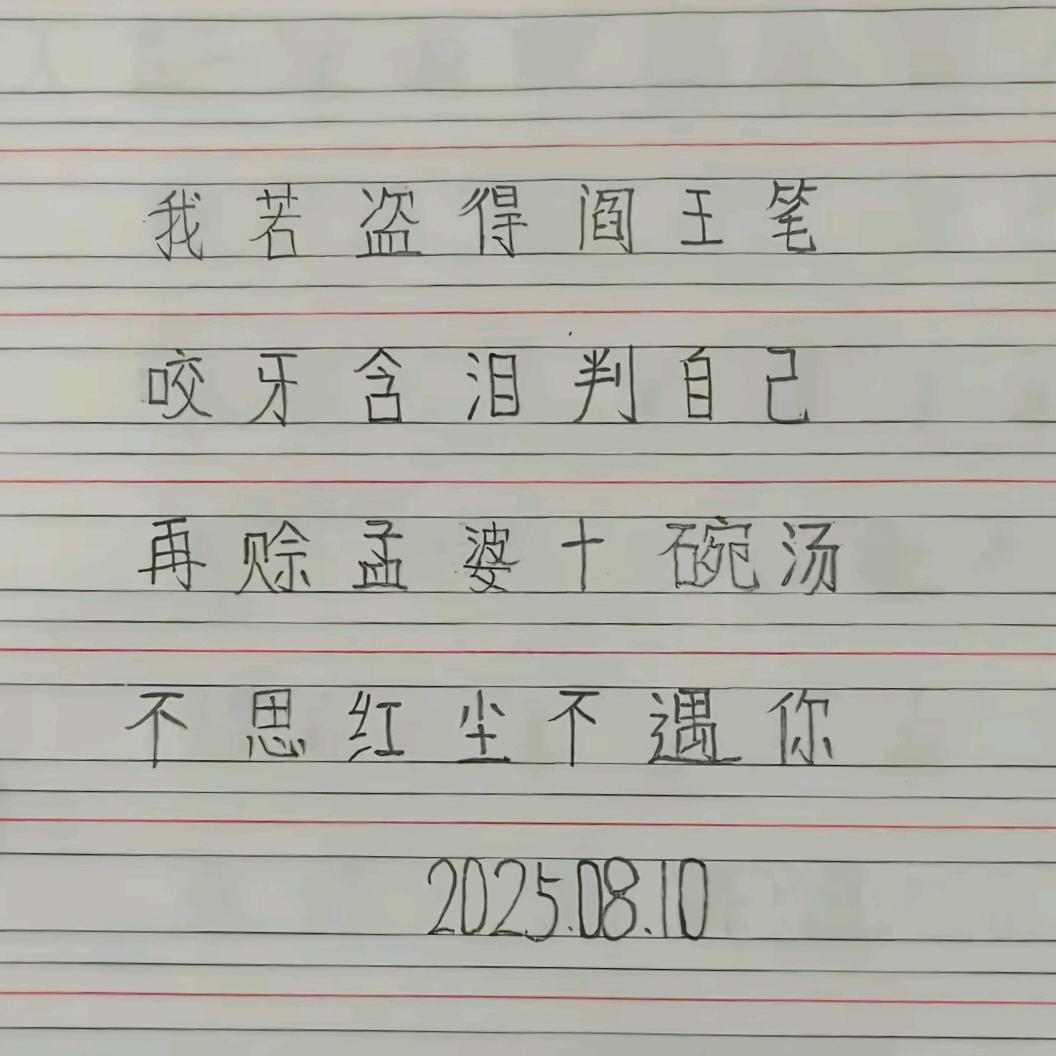 我若盗得阎王笔
咬牙含泪判自己
再赊孟婆十碗汤
不思红尘不遇你
2025.08.10